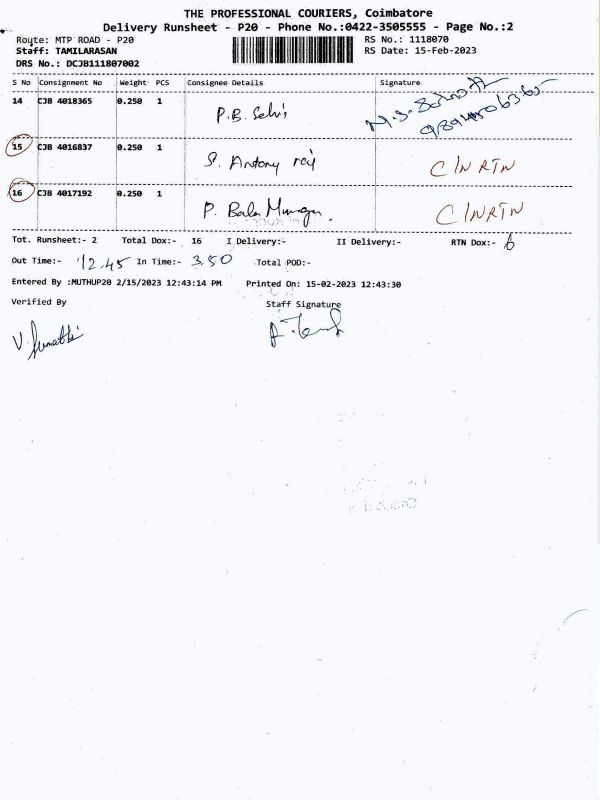 THE PROFESSIONAL COURIERS, Coimbatore
Delivery Runsheet - P20 - Phone No.:0422-3505555 - Page No.:2
Route: MTP ROAD - P20 RS No.: 1118070
Staff: TAMILARASAN RS Date: 15-Feb-2023
DRS No.: DCJB111807002
S No Consignment No Weight PCS Consignee Details Signature
14 CJB 4018365 0.250 1 P.B. Selvi
15 CJB 4016837 0.250 1 S. Antony raj C/N RTN
16 CJB 4017192 0.250 1 P. Bala Murugan. C/N RTN
Tot. Runsheet:- 2 Total Dox:- 16 I Delivery:- II Delivery:- RTN Dox:- 6
Out Time:- 12.45 In Time:- 3.50 Total POD:-
Entered By :MUTHUP20 2/15/2023 12:43:14 PM Printed On: 15-02-2023 12:43:30
Verified By Staff Signature